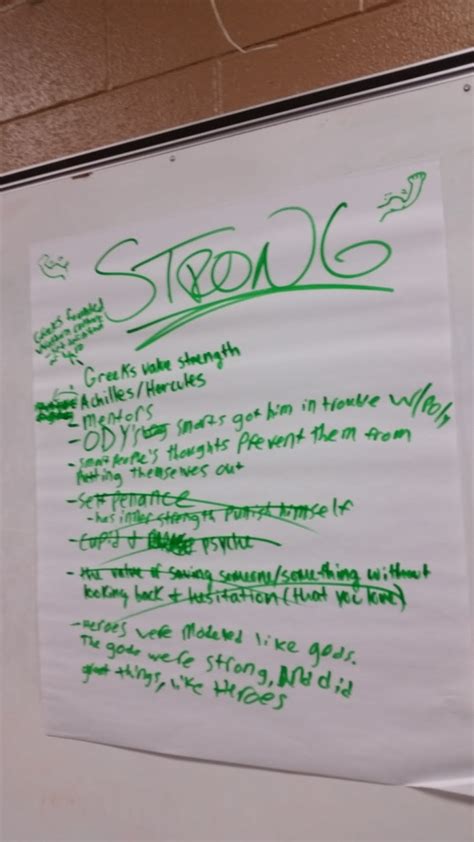 STRONG
Greeks
- Greeks value strength
Achilles/Hercules
- mentors
- ODY's smarts got him in trouble w/poly
- smart people's thoughts prevent them from
putting themselves out
- Self penance
- has inner strength punish himself
- Cupid & psyche
- the value of saving someone/something without
looking back & hesitation (that you love)
- Heroes were modeled like gods.
The gods were strong, and did
great things, like Heroes